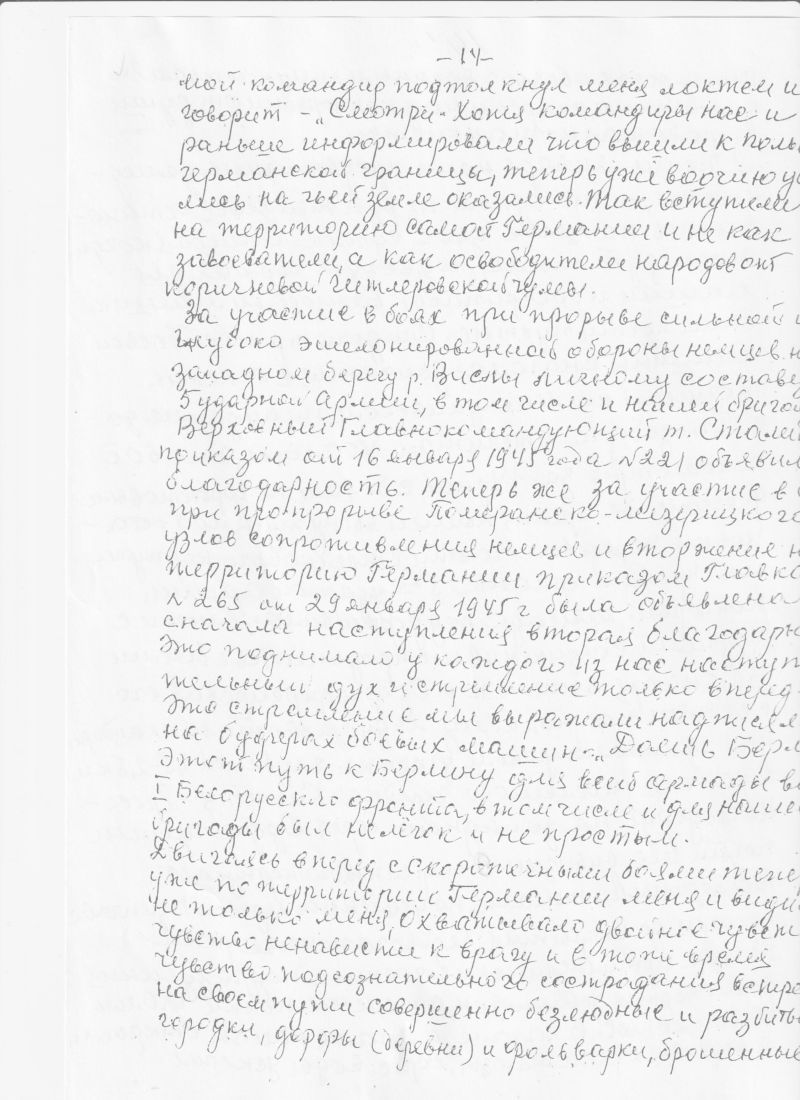 -14-
мой командир подтолкнул меня локтем и
говорит - „Смотри". Хотя командиры нас и
раньше информировали что вышли к поль
германской границы, теперь уже воочию у
лись на чьей земле оказались. Так вступили
на территорию самой Германии и не как
завоеватели, а как освободители народов от
коричневой Гитлеровской чумы.
За участие в боях при прорыве сильной и
глубоко эшелонированной обороны немцев н
западном берегу р. Вислы личному составу
5 ударной армии, в том числе и нашей бригад
Верховный Главнокомандующий т. Стали
приказом от 16 января 1945 года №221 объявил
благодарность. Теперь же за участие в
при пропрорыве Померанско-мезерицкого
узлов сопротивления немцев и вторжение н
территорию Германии приказом Главко
№265 от 29 января 1945 г была объявлена
сначала наступления вторая благодарн
Это поднимало у каждого из нас наступ
тельный дух и стремление только вперед.
Это стремление мы выражали надписям
на буферах боевых машин - „Даешь Берл
Этот путь к Берлину для всей армады во
I Белорусского фронта, в том числе и для нашей
бригады был нелёгок и не простым.
Двигаясь вперед с скоротечными боями тепе
уже по территории Германии меня и види
не только меня, охватывало двойное чувст
чувство ненависти к врагу и в тоже время
чувство подсознательного сострадания встре
на своем пути совершенно безлюдные и разбиты
городки, дорфы (деревни) и фольварки, брошенные